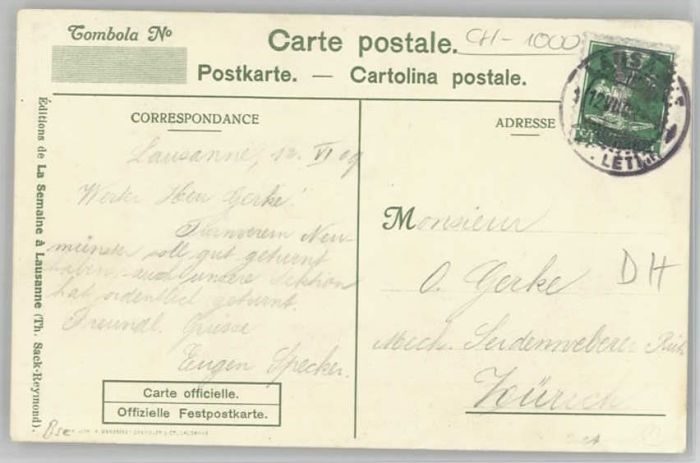 Tombola Nº
Carte postale.
CH-1000
Postkarte. — Cartolina postale.
LETT
CORRESPONDANCE
ADRESSE
Lausanne, 12. VII 09
Werter Herr Gerke!
Turnverein Neu-
münster soll gut geturnt
haben auch unsere Sektion
hat ordentlich geturnt.
Freundl. Grüsse
Eugen Specker.
Monsieur
O. Gerke
Mech. Seidenweberei
Zürich
DH
Carte officielle.
Offizielle Festpostkarte.
Éditions de La Semaine à Lausanne (Th. Sack-Reymond).